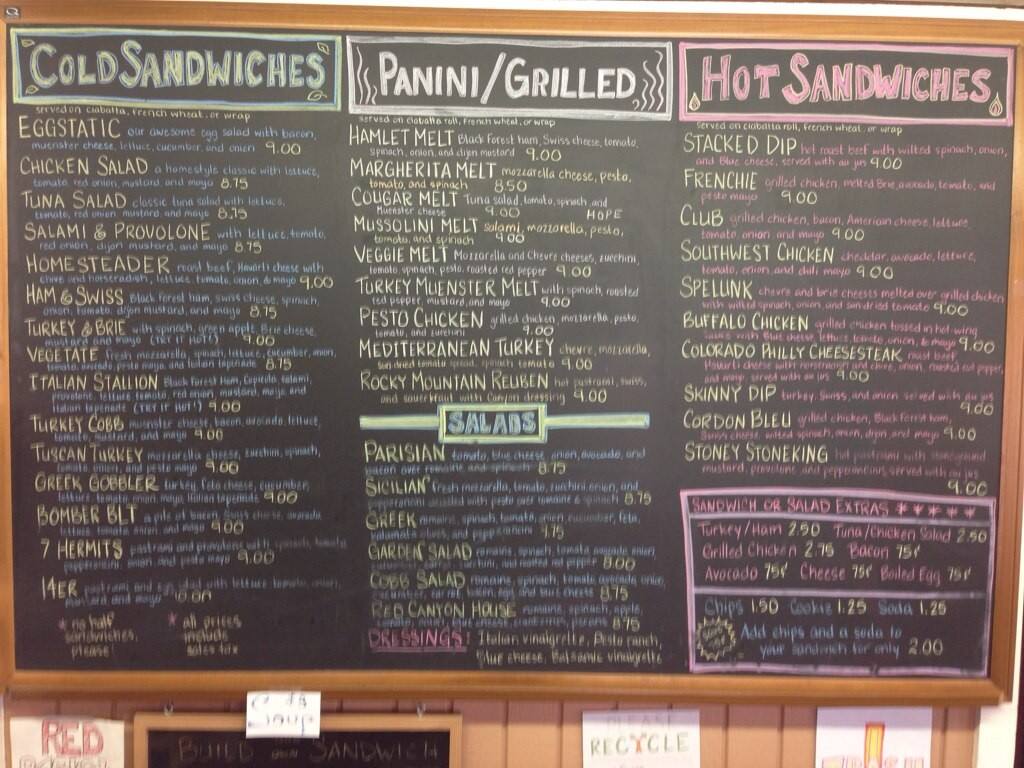 COLD SANDWICHES
served on ciabatta, French wheat, or wrap
EGGSTATIC our awesome egg salad with bacon,
muenster cheese, lettuce, cucumber, and onion 9.00
CHICKEN SALAD a homestyle classic with lettuce,
tomato, red onion, mustard and mayo 8.75
TUNA SALAD classic tuna salad with lettuce,
tomato, red onion, mustard and mayo 8.75
SALAMI & PROVOLONE with lettuce, tomato,
red onion, dijon mustard, and mayo 8.75
HOMESTEADER roast beef, Havarti cheese with
chive and horseradish, lettuce, tomato, onion, & mayo 9.00
HAM & SWISS Black Forest ham, swiss cheese, spinach,
onion, tomato, dijon mustard, and mayo 8.75
TURKEY & BRIE with spinach, green apple, Brie cheese,
mustard and mayo (TRY IT HOT!) 9.00
VEGETATE fresh mozzarella, spinach, lettuce, cucumber, onion,
tomato, avocado, pesto mayo and Italian tapenade 8.75
ITALIAN STALLION Black Forest Ham, Capicola, salami,
provolone, lettuce, tomato, red onion, mustard, mayo, and
Italian tapenade (TRY IT HOT!) 9.00
TURKEY COBB muenster cheese, bacon, avocado, lettuce,
tomato, mustard, and mayo 9.00
TUSCAN TURKEY mozzarella cheese, zucchini, spinach,
tomato, onion, and pesto mayo 9.00
GREEK GOBBLER turkey, feta cheese, cucumber,
lettuce, tomato, onion, mayo, Italian tapenade 9.00
BOMBER BLT a pile of bacon, Swiss cheese, avocado,
lettuce, tomato, onion, and mayo 9.00
7 HERMITS pastrami and provolone with spinach, tomato,
pepperoncini, onion, and pesto mayo 9.00
14ER pastrami and egg salad with lettuce, tomato, onion,
mustard, and mayo
* no half
sandwiches,
please!
* all prices
include
sales tax
PANINI/GRILLED
served on ciabatta roll, french wheat, or wrap
HAMLET MELT Black Forest ham, Swiss cheese, tomato,
spinach, onion, and dijon mustard 9.00
MARGHERITA MELT mozzarella cheese, pesto,
tomato, and spinach 8.50
COUGAR MELT Tuna salad, tomato, spinach, and
Muenster cheese 9.00 HOPE
MUSSOLINI MELT salami, mozzarella, pesto,
tomato, and spinach 9.00
VEGGIE MELT Mozzarella and Chevre cheeses, zucchini,
tomato, spinach, pesto, roasted red pepper 9.00
TURKEY MUENSTER MELT with spinach, roasted
red pepper, mustard, and mayo 9.00
PESTO CHICKEN grilled chicken, mozzarella, pesto,
tomato, and zucchini 9.00
MEDITERRANEAN TURKEY chevre, mozzarella,
sun dried tomato spread, spinach, tomato 9.00
ROCKY MOUNTAIN REUBEN hot pastrami, swiss,
and sauerkraut with Canyon dressing 9.00
SALADS
PARISIAN tomato, blue cheese, onion, avocado, and
bacon over romaine and spinach 8.75
SICILIAN fresh mozzarella, tomato, zucchini, onion, and
with pesto over romaine & spinach 8.75
GREEK romaine, spinach, tomato, onion, cucumber, feta,
kalamata olives, and pepperoncini 8.75
GARDEN SALAD romaine, spinach, tomato, avocado, onion,
cucumber, carrot, zucchini, and roasted red pepper 8.00
COBB SALAD romaine, spinach, tomato, avocado, onion,
cucumber, carrot, bacon, egg, and blue cheese 8.75
RED CANYON HOUSE romaine, spinach, apple,
tomato, onion, blue cheese, cranberries, pecans 8.75
DRESSINGS: Italian vinaigrette, Pesto ranch,
Blue cheese, Balsamic vinaigrette
HOT SANDWICHES
served on ciabatta roll, french wheat, or wrap
STACKED DIP hot roast beef with wilted spinach, onion,
and Blue cheese, served with au jus 9.00
FRENCHIE grilled chicken, melted Brie, avocado, tomato, and
pesto mayo 9.00
CLUB grilled chicken, bacon, American cheese, lettuce,
tomato, onion, and mayo 9.00
SOUTHWEST CHICKEN cheddar, avocado, lettuce,
tomato, onion, and chili mayo 9.00
SPELUNK chevre and brie cheeses melted over grilled chicken
with wilted spinach, onion, and sundried tomato 9.00
BUFFALO CHICKEN grilled chicken tossed in hot wing
sauce with Blue cheese, lettuce, tomato, onion, & mayo 9.00
COLORADO PHILLY CHEESESTEAK roast beef,
Havarti cheese with horseradish and chive, onion, roasted red pepper,
and mayo served with au jus 9.00
SKINNY DIP turkey, Swiss, and onion served with au jus
9.00
CORDON BLEU grilled chicken, Black Forest ham,
Swiss cheese, wilted spinach, onion, dijon, and mayo 9.00
STONEY STONEKING hot pastrami with stoneground
mustard, provolone and pepperoncini, served with au jus
9.00
SANDWICH OR SALAD EXTRAS * * * * *
Turkey/Ham 2.50 Tuna/Chicken Salad 2.50
Grilled Chicken 2.75 Bacon 75¢
Avocado 75¢ Cheese 75¢ Boiled Egg 75¢
Chips 1.50 Cookie 1.25 Soda 1.25
Add chips and a soda to
your sandwich for only 2.00
RED
Soup
BUILD OWN SANDWICH
PLEASE
RECYCLE